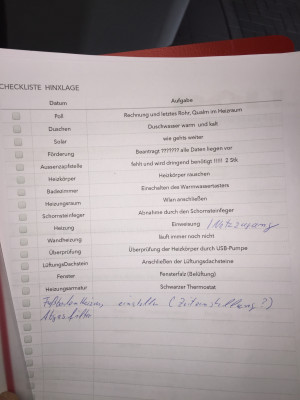 CHECKLISTE HINXLAGE
Datum Aufgabe
Poll Rechnung und letztes Rohr, Qualm im Heizraum
Duschen Duschwasser warm und kalt
Solar wie gehts weiter
Förderung Beantragt ??????? alle Daten liegen vor
Aussenzapfstelle fehlt und wird dringend benötigt !!!! 2 Stk
Heizkörper Heizkörper rauschen
Badezimmer Einschalten des Warmwassertasters
Heizungsraum Wlan anschließen
Schornsteinfeger Abnahme durch den Schornsteinfeger
Heizung Einweisung
Wandheizung läuft immer noch nicht
Überprüfung Überprüfung der Heizkörper durch USB-Pumpe
LüftungsDachstein Anschließen der Lüftungsdachsteine
Fenster Fensterfalz (Belüftung)
Heizungsarmatur Schwarzer Thermostat
einstellen (Zeitumstellung?)